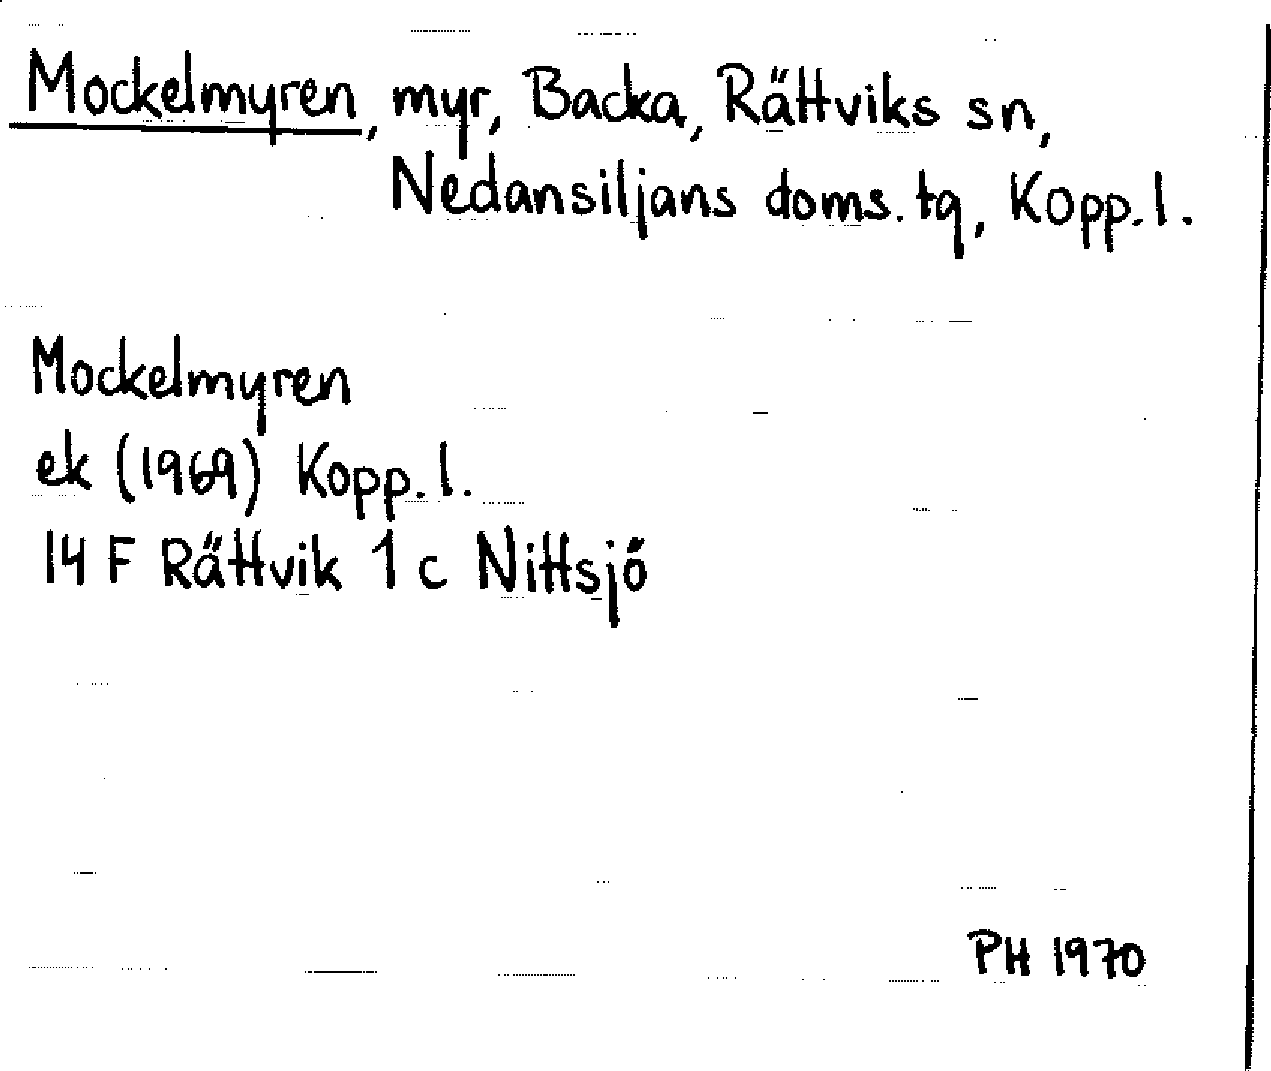 Mockelmyren, myr, Backa, Rättviks sn,
Nedansiljans doms. tg, Kopp. l.
Mockelmyren
ek (1969) Kopp. l.
14 F Rättvik 1 c Nittsjö
PH 1970